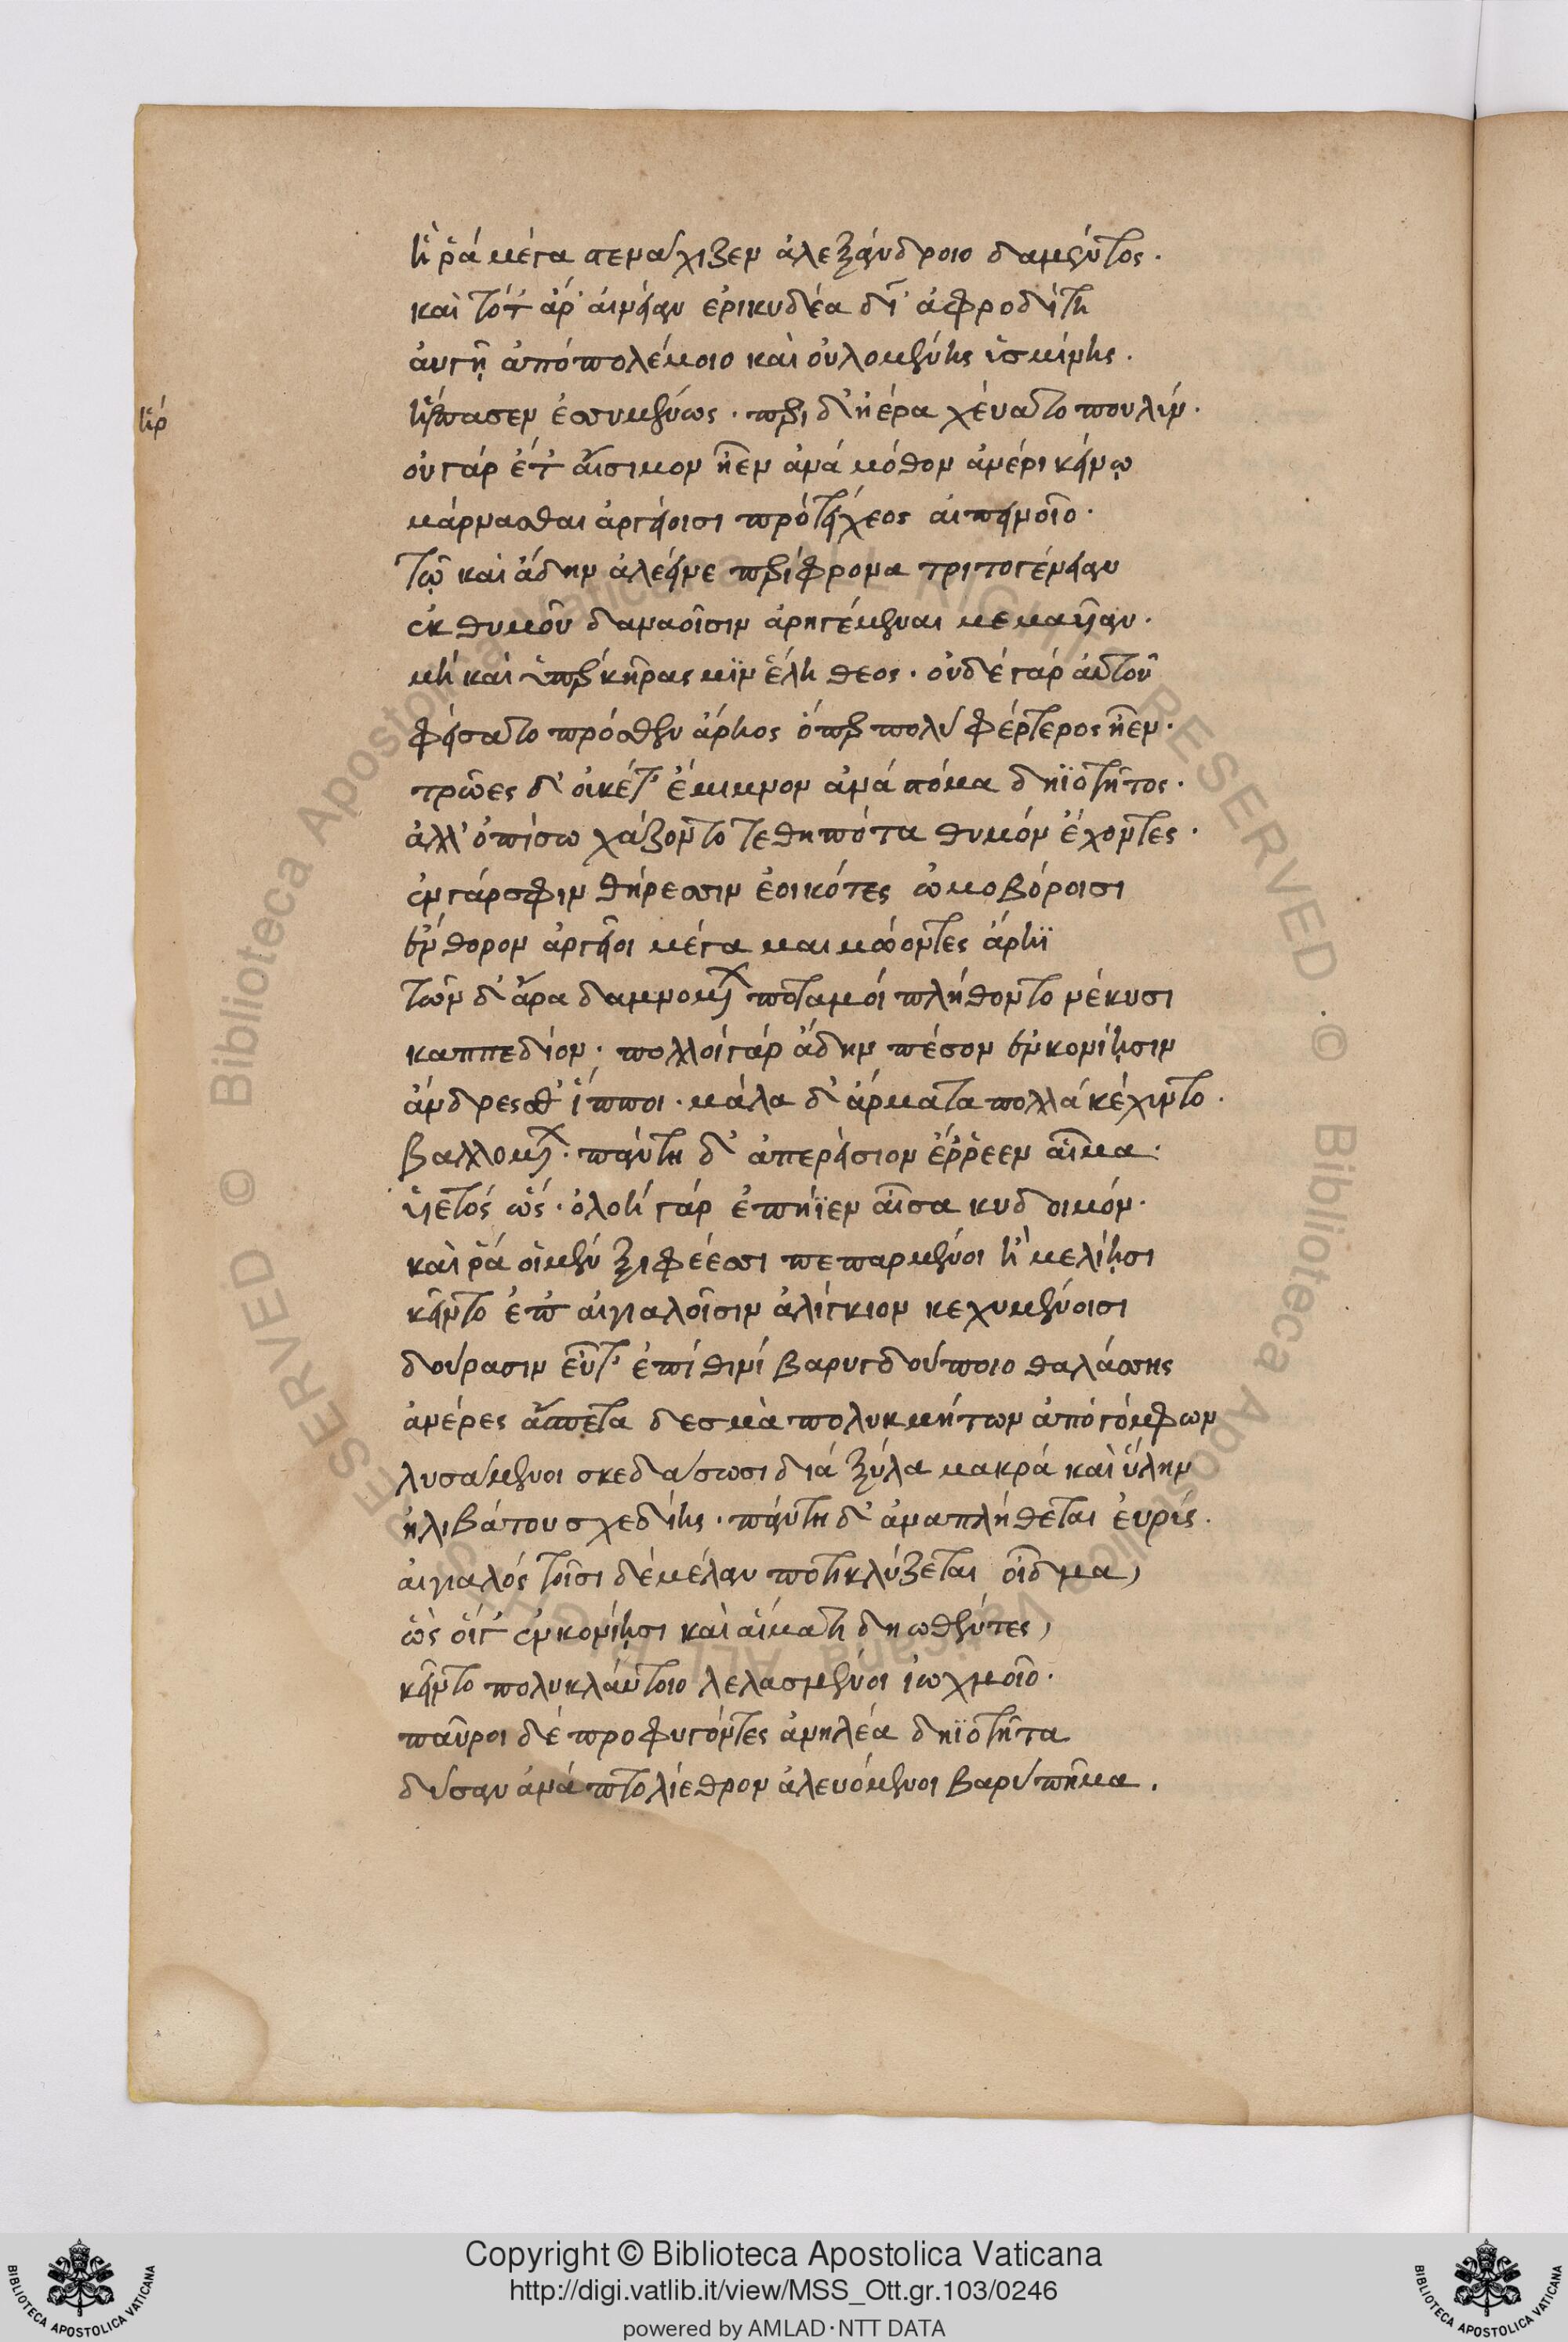 ἥ ῥά μέγα πεναχιζεν ἀλεξάνδροιο δαμέντος.
καὶ τότ ἄρ' αἰνείαν ἐρικυδέα δῖ' ἀφροδίτη
ἀυτὴ ἀπό πολέμοιο καὶ οὐλομένης ὑσμίνης.
ἥρ
ἥρπασεν ἐσσυμένως. περὶ δ' ἠέρα χέυατο πουλύν.
οὐ γάρ ἔτ' αἴσιμον ἦεν ἀνά μόθον ἀνέρι κείνῳ
μάρνασθαι ἀργείοισι πρό τείχεος αἰπεινοῖο.
τῷ καὶ ἄδην ἀλέεινε περίφρονα τριτογένειαν
ἐκ θυμοῦ δαναοῖσιν ἀρηγέμεναι μεμαυῖαν.
μή καὶ ὑπέρ κῆρας μϊν ἕλη θεος. οὐδέ γάρ ἀυτοῦ
φείσατο πρόσθεν ἄρηος ὅπερ πολύ φέρτερος ἦεν.
τρῶες δ' οὐκέτ' ἔμιμνον ἀνά στόμα δηϊοτῆτος.
ἀλλ' ὀπίσω χάζοντο τεθηπότα θυμόν ἔχοντες.
ἐν γάρ σφιν θήρεσσιν ἐοικότες ὠμοβόροισι
ἔνθορον ἀργεῖοι μέγα μαιμώοντες ἄρηϊ
τῶν δ' ἄρα δαμνομένων ποταμοί πλήθοντο νέκυσι
καππεδίον. πολλοί γάρ ἄδην πέσον ἐν κονίῃσιν
ἄνδρες θ' ἵπποι. μάλα δ' ἅρματα πολλά κέχυντο.
βαλλομένων. πάντη δ' ἀπερείσιον ἔρρεεν αἷμα.
ὑετός ὥς. ὀλοή γάρ ἐπήϊεν αἶσα κυδοιμόν.
καὶ ῥά οἱ μέν ξιφέεσσι πεπαρμένοι ἢ μελίῃσι
κεῖντο ἐπ' αἰγιαλοῖσιν ἀλίγκιον κεχυμένοισι
δούρασιν εὖτ' ἐπί θινί βαρυγδούποιο θαλάσσης
ἀνέρες ἄσπετα δεσμὰ πολυκμήτων ἀπό γόμφων
λυσάμενοι σκεδάσωσι διά ξύλα μακρά καὶ ὕλην
ἠλιβάτου σχεδίης. πάντη δ' ἀναπλήθεται ἐυρύς.
αἰγιαλός τοῖσι δέ μέλαν ποτικλύζεται οἶδμα,
ὣς οἵγ' ἐν κονίῃσι καὶ αἵματι δῃωθέντες,
κεῖντο πολυκλαύτοιο λελασμένοι ἰωχμοῖο.
παῦροι δέ προφυγόντες ἀνηλέα δηϊοτῆτα
δύσαν ἀνά πτολίεθρον ἀλευόμενοι βαρύ πῆμα.
Copyright © Biblioteca Apostolica Vaticana
http://digi.vatlib.it/view/MSS_Ott.gr.103/0246
powered by AMLAD·NTT DATA